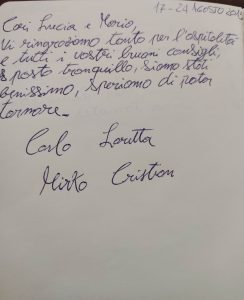 17-24 AGOSTO
Cari Lucia e Mario,
Vi ringraziamo tanto per l'ospitalità
e tutti i vostri buoni consigli,
posto tranquillo, siamo stati
benissimo, speriamo di poter
tornare.
Carlo Loretta
Mirko Cristian